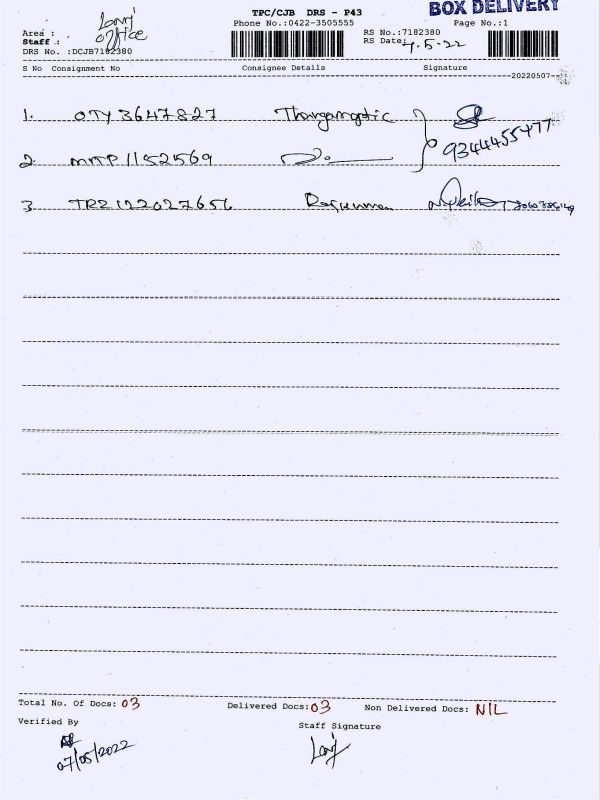 BOX DELIVERY
TPC/CJB DRS - P43
Phone No.:0422-3505555
Page No.:1
Area :
Staff : office
DRS No. :DCJB7182380
RS No.:7182380
RS Date: 7.5.22
S No Consignment No Consignee Details Signature
20220507
1. OTY3647827
9344455477
2. MTP11521569
3 TRZ122027656 Rajkumar
Total No. Of Docs: 03 Delivered Docs: 03 Non Delivered Docs: NIL
Verified By Staff Signature
07/05/2022